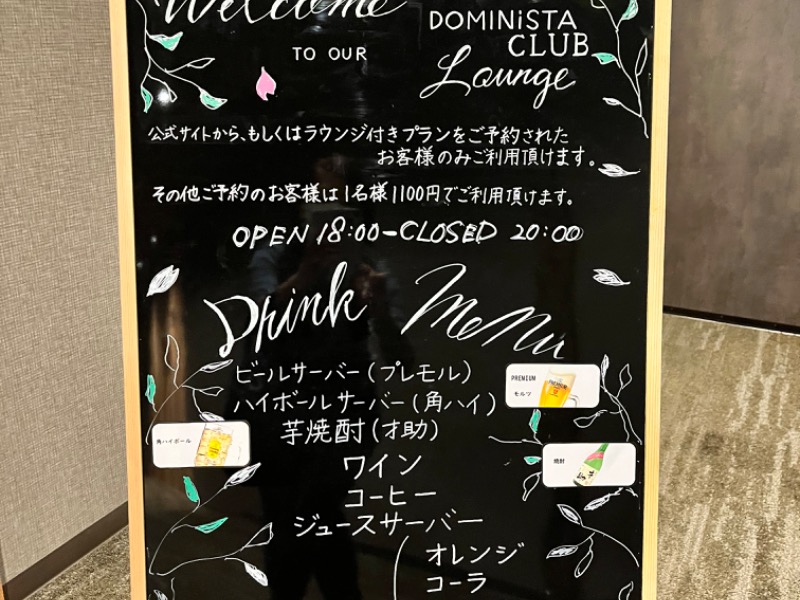 Welcome
TO OUR
DOMINiSTA
CLUB
Lounge
公式サイトから、もしくはラウンジ付きプランをご予約された
お客様のみご利用頂けます。
その他ご予約のお客様は1名様1100円でご利用頂けます。
OPEN 18:00-CLOSED 20:00
Drink Menu
ビールサーバー(プレモル)
PREMIUM
モルツ
ハイボールサーバー(角ハイ)
芋焼酎(才助)
角ハイボール
ワイン
焼酎
コーヒー
ジュースサーバー
オレンジ
コーラ